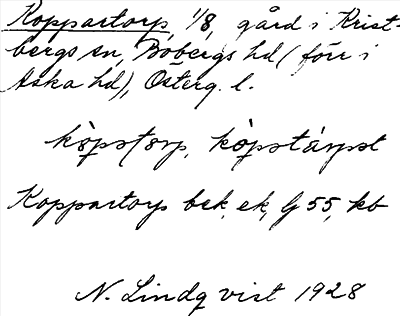 Koppartorp, 1/8, gård i Krist-
bergs sn, Bobergs hd (förr i
Aska hd), Österg. l.
Koppartorp bek, ek, G 55, kb
N. Lindqvist 1928